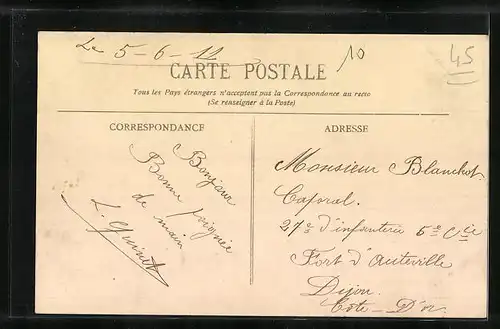 Le 5-6-11
10
45
CARTE POSTALE
Tous les Pays étrangers n'acceptent pas la Correspondance au recto
(Se renseigner à la Poste)
CORRESPONDANCE
Bonjour
Bonne poignée
de main
L. Guinet
ADRESSE
Monsieur Blanchot.
Caporal.
27e d'infanterie 5e Cie
Fort d'Auteville
Dijon.
Côte-D'or.